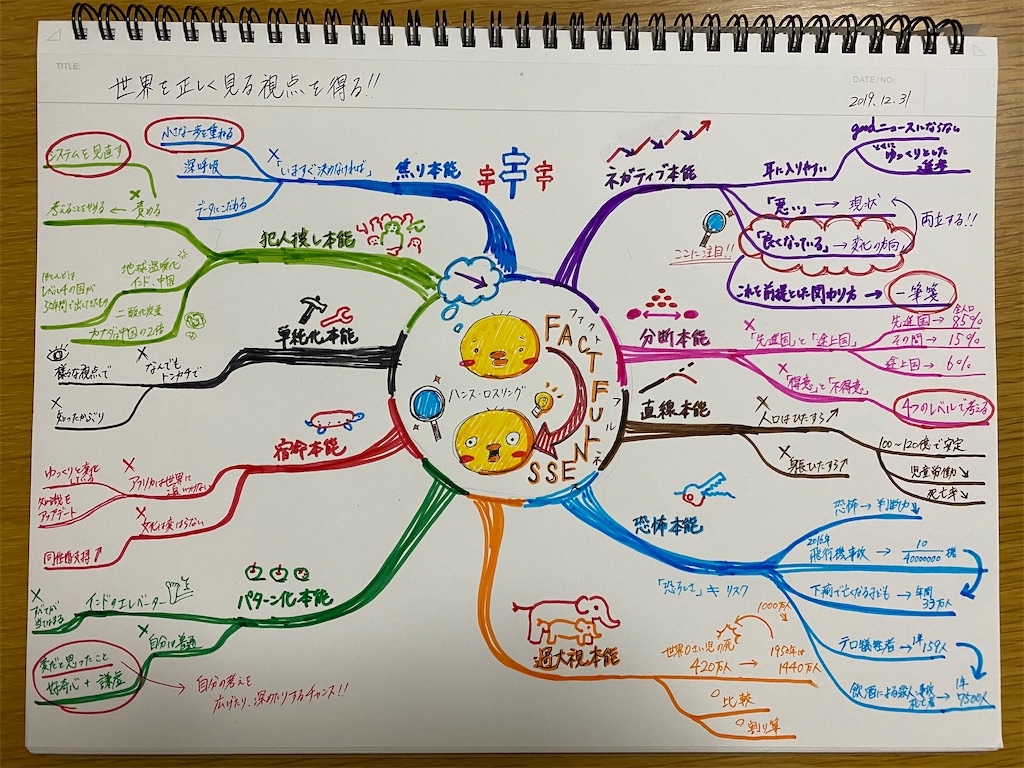 TITLE:
世界を正しく見る視点を得る!!
DATE/NO.
2019.12.31
FACTFULNESS
ファクトフルネス
ハンス・ロスリング
ネガティブ本能
耳に入りやすい
goodニュースにならない
とくに
ゆっくりとした
進歩
「悪い」→現状
両立する!!
「良くなっている」→変化の方向
ここに注目!!
これを前提とした関わり方→一筆箋
分断本能
×「先進国」と「途上国」
全人口
先進国→85%
その間→15%
途上国→6%
×「得意」と「不得意」
4つのレベルで考える
直線本能
×人口はひたすら↗
100〜120億で安定
児童労働↘
死亡率↘
×身長ひたすら↗
恐怖本能
恐怖→判断力↘
「恐ろしさ」≠リスク
2016年
飛行機事故→10/40000000機
下痢で亡くなる子ども→年間
33万人
テロ犠牲者→1年
159人
飲酒による殺人、事故
死亡者→1年
7500人
過大視本能
1000万人↘
世界の赤い児の死
420万人→
1950年は
1440万人
比較
割り算
パターン化本能
インドのエレベーター
×すべてが
当てはまる
×自分は普通
変だと思ったこと
好奇心+謙虚
→自分の考えを
広げたり、深めたりするチャンス!!
宿命本能
×アフリカは世界に
追いつけない
ゆっくりと変化
している
知識を
アップデート
×文化は変わらない
同性婚支持↗
単純化本能
×なんでも
トンカチで
様々な視点で
×知ったかぶり
犯人捜し本能
×責める
考えることをやめる←
システムを見直す
地球温暖化
インド、中国
ほとんどは
レベル4の国が
50年間で出してきたもの
二酸化炭素
カナダは中国の2倍
焦り本能
×「いますぐ決めなければ」
小さな一歩を重ねる
深呼吸
データにこだわる